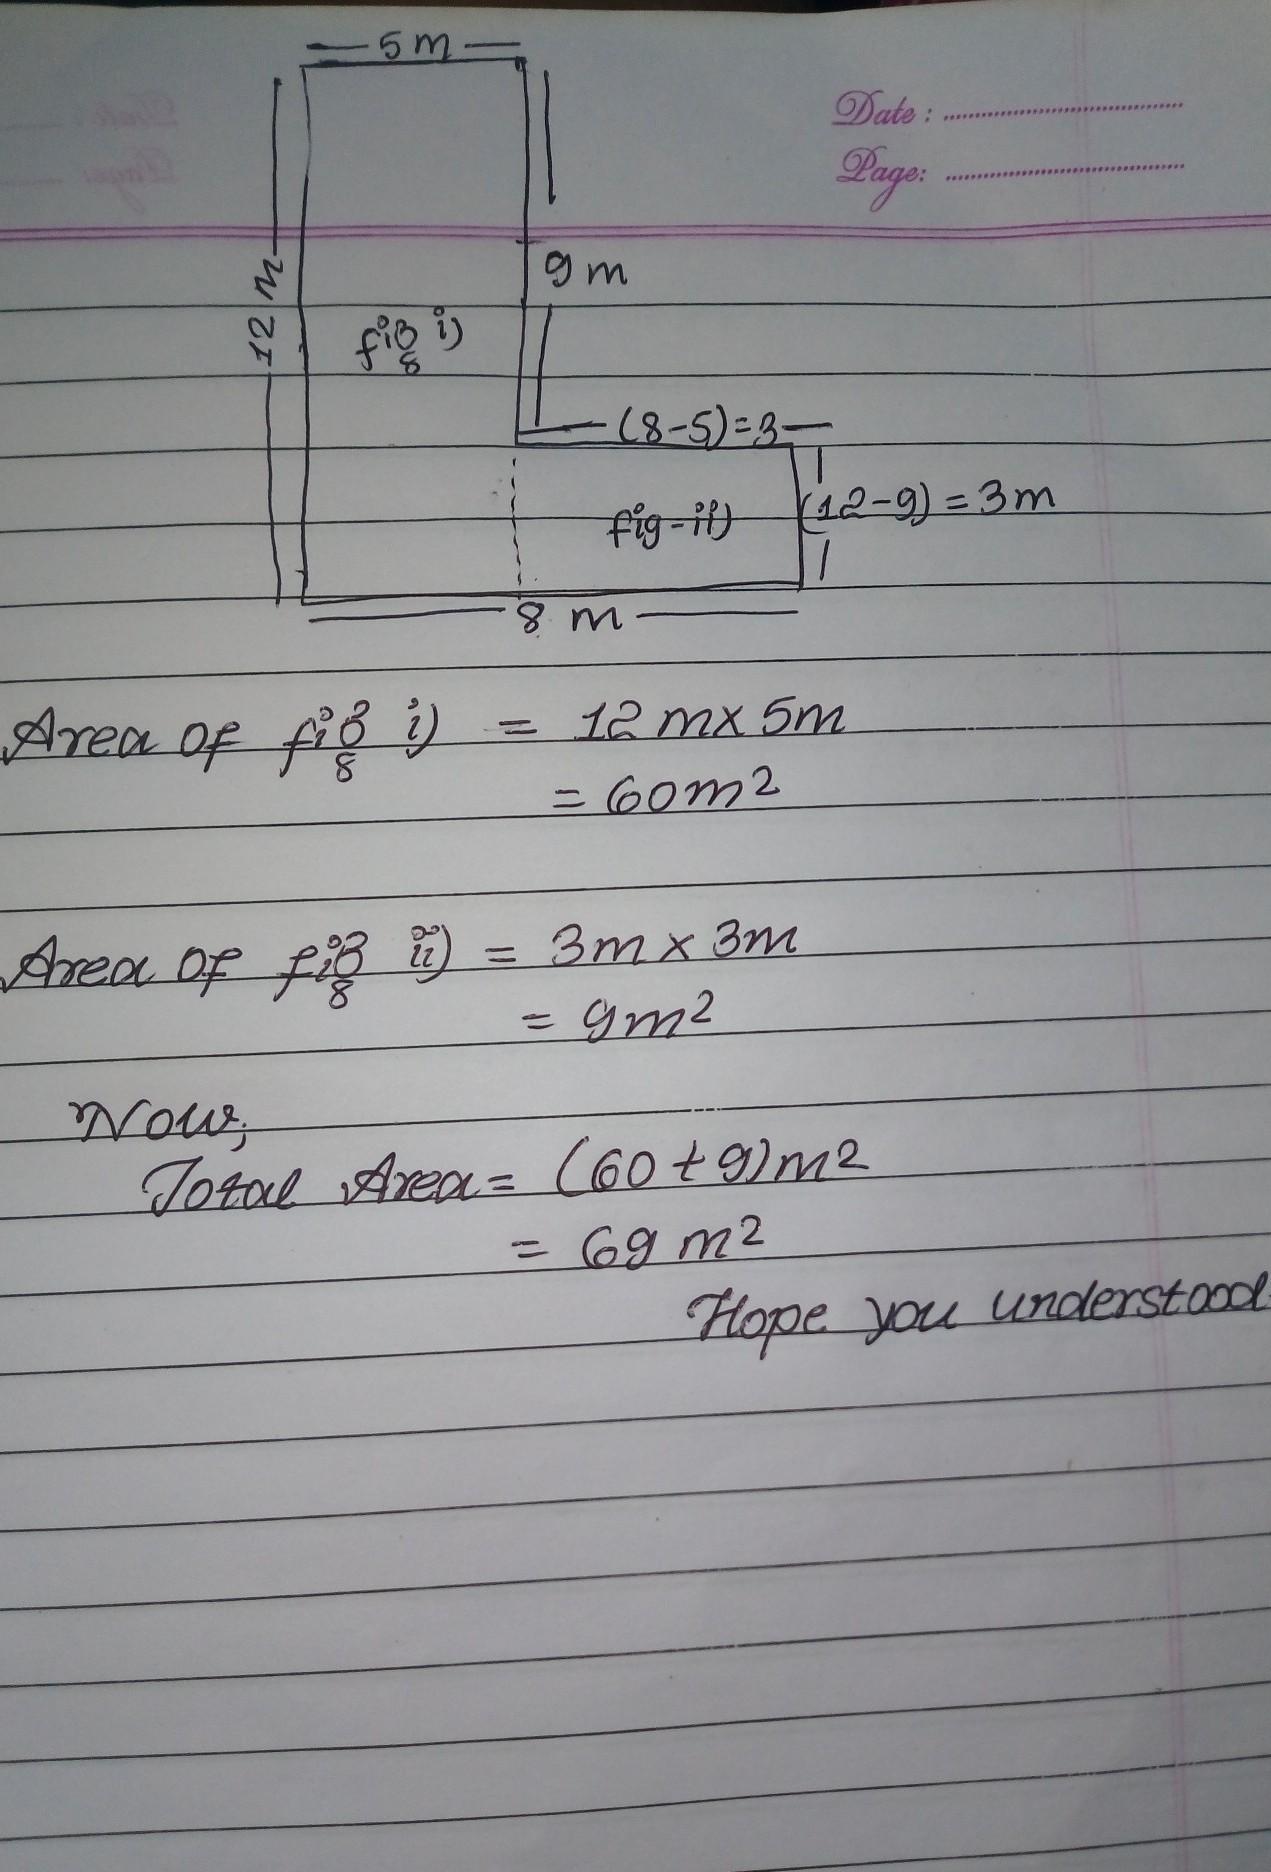 5 m
Date :
Page:
12 m
9 m
fig i)
(8-5)=3
fig-ii)
(12-9) = 3m
8 m
Area of fig i) = 12 m x 5m
= 60m²
Area of fig ii) = 3m x 3m
= 9m²
Now,
Total Area = (60+9)m²
= 69 m²
Hope you understood